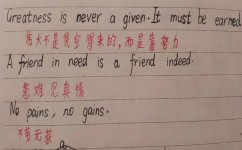 Greatness is never a given. It must be earned
伟大不是凭空得来的，而是靠努力
A friend in need is a friend indeed.
患难见真情
No pains, no gains.
不劳无获